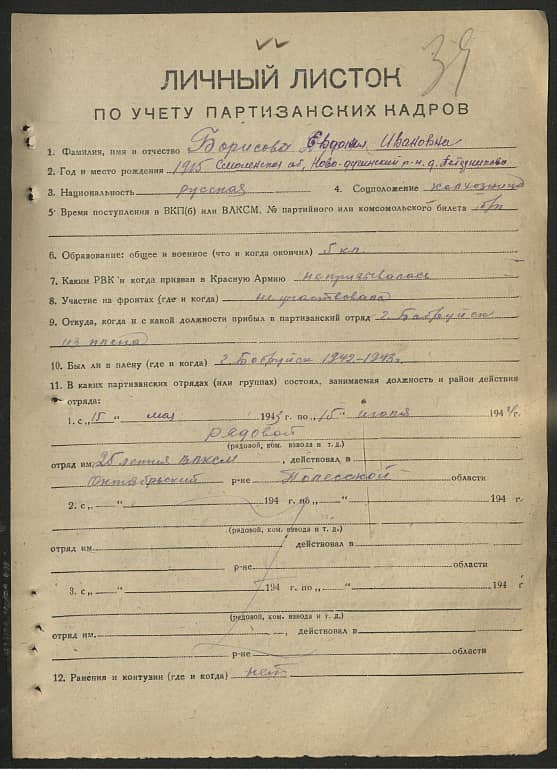 39
ЛИЧНЫЙ ЛИСТОК
ПО УЧЕТУ ПАРТИЗАНСКИХ КАДРОВ
1. Фамилия, имя и отчество Борисова Евдокия Ивановна
2. Год и место рождения 1915 Смоленская об, Ново-дугинский р-н. д.
3. Национальность русская 4. Соцположение колхозница
5. Время поступления в ВКП(б) или ВЛКСМ, № партийного или комсомольского билета б/п
6. Образование: общее и военное (что и когда окончил) 5 кл
7. Каким РВК и когда призван в Красную Армию непризывалась
8. Участие на фронтах (где и когда) не участвовала
9. Откуда, когда и с какой должности прибыл в партизанский отряд г. Бобруйск
из плена
10. Был ли в плену (где и когда) г. Бобруйск 1942-1943г.
11. В каких партизанских отрядах (или группах) состоял, занимаемая должность и район действия
отряда:
1. с „15“ мая 1943 г. по „15“ июля 1944 г.
рядовой
(рядовой, ком. взвода и т. д.)
отряд им. 25 летия ВЛКСМ, действовал в
Октябрьский р-не Полесской области
2. с „ “ 194 г. по „ “ 194 г.
(рядовой, ком. взвода и т. д.)
отряд им. действовал в
р-не области
3. с „ “ 194 г. по „ “ 194 г.
(рядовой, ком. взвода и т. д.)
отряд им. , действовал в
р-не области
12. Ранения и контузии (где и когда) нет